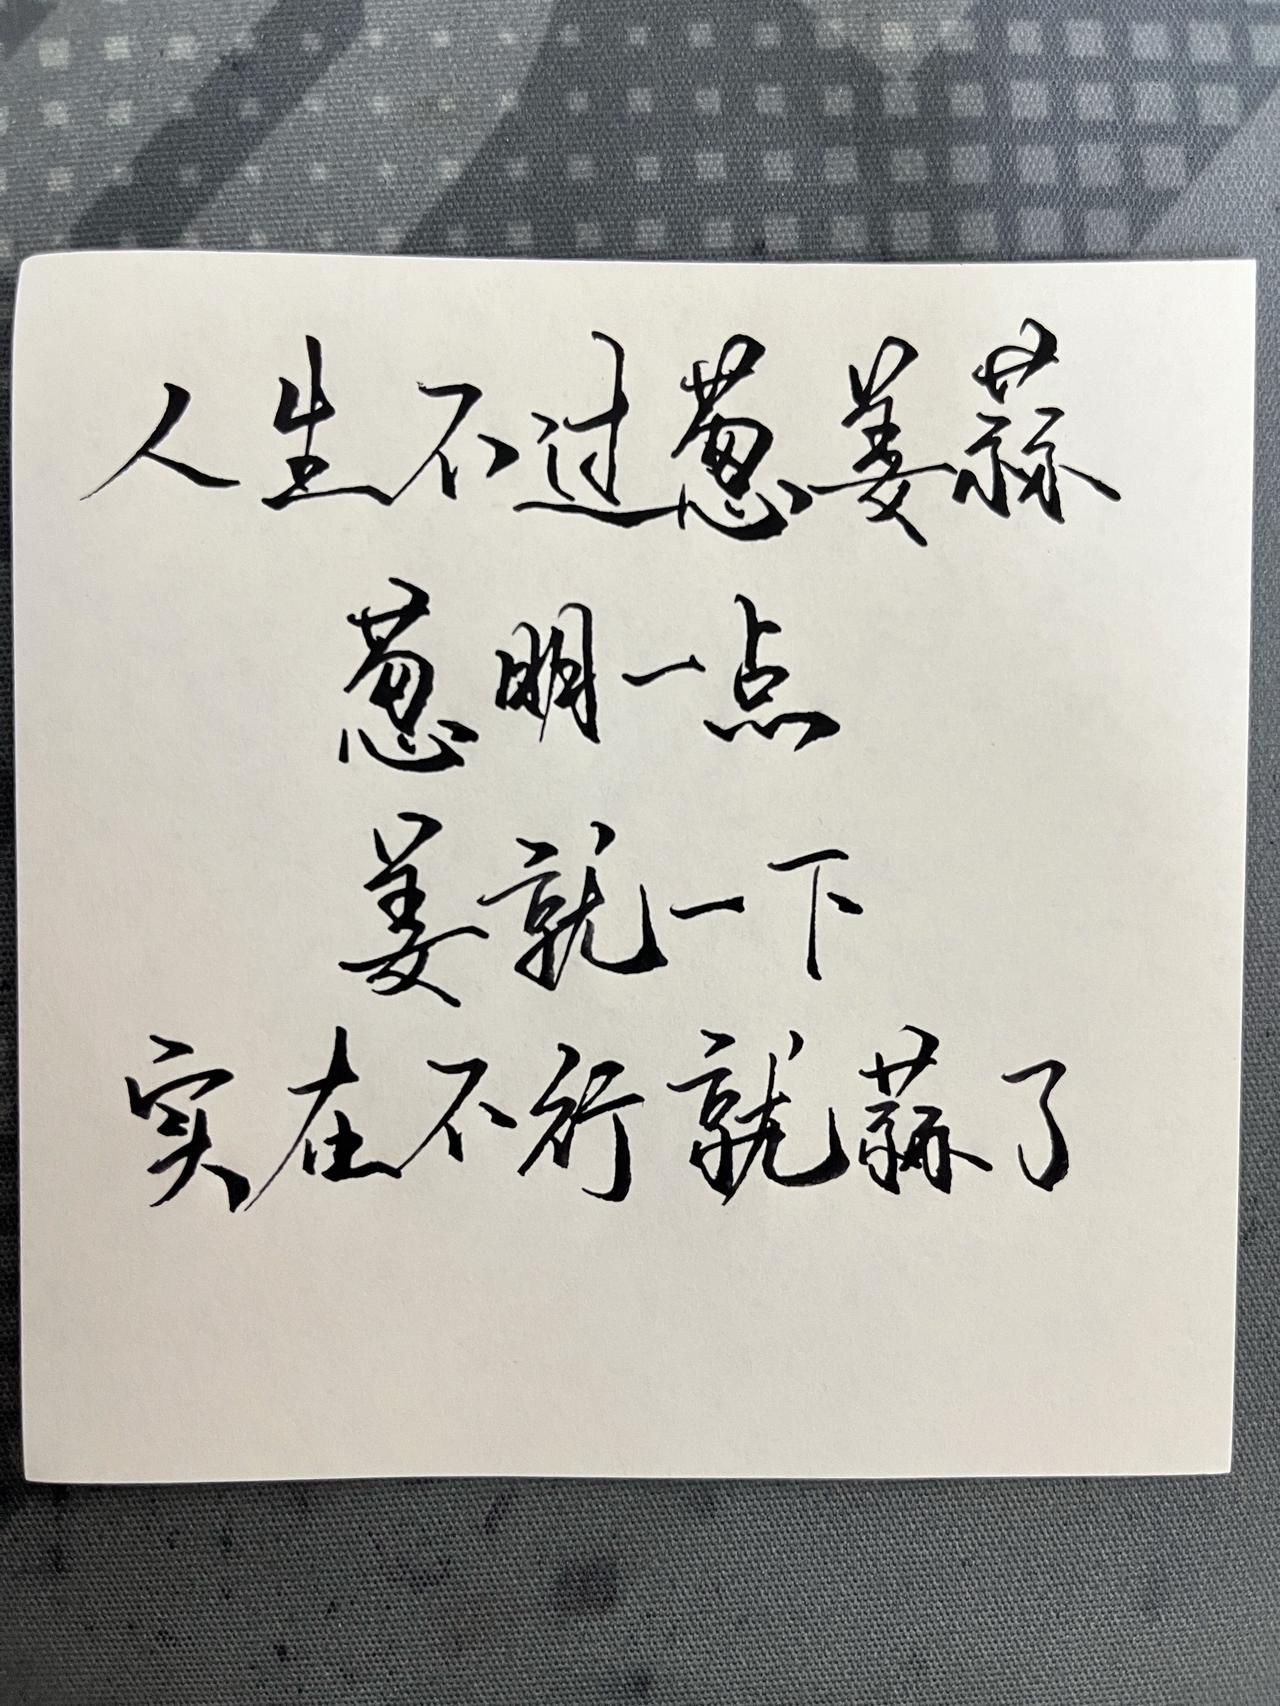 人生不过葱姜蒜
葱明一点
姜就一下
实在不行就蒜了